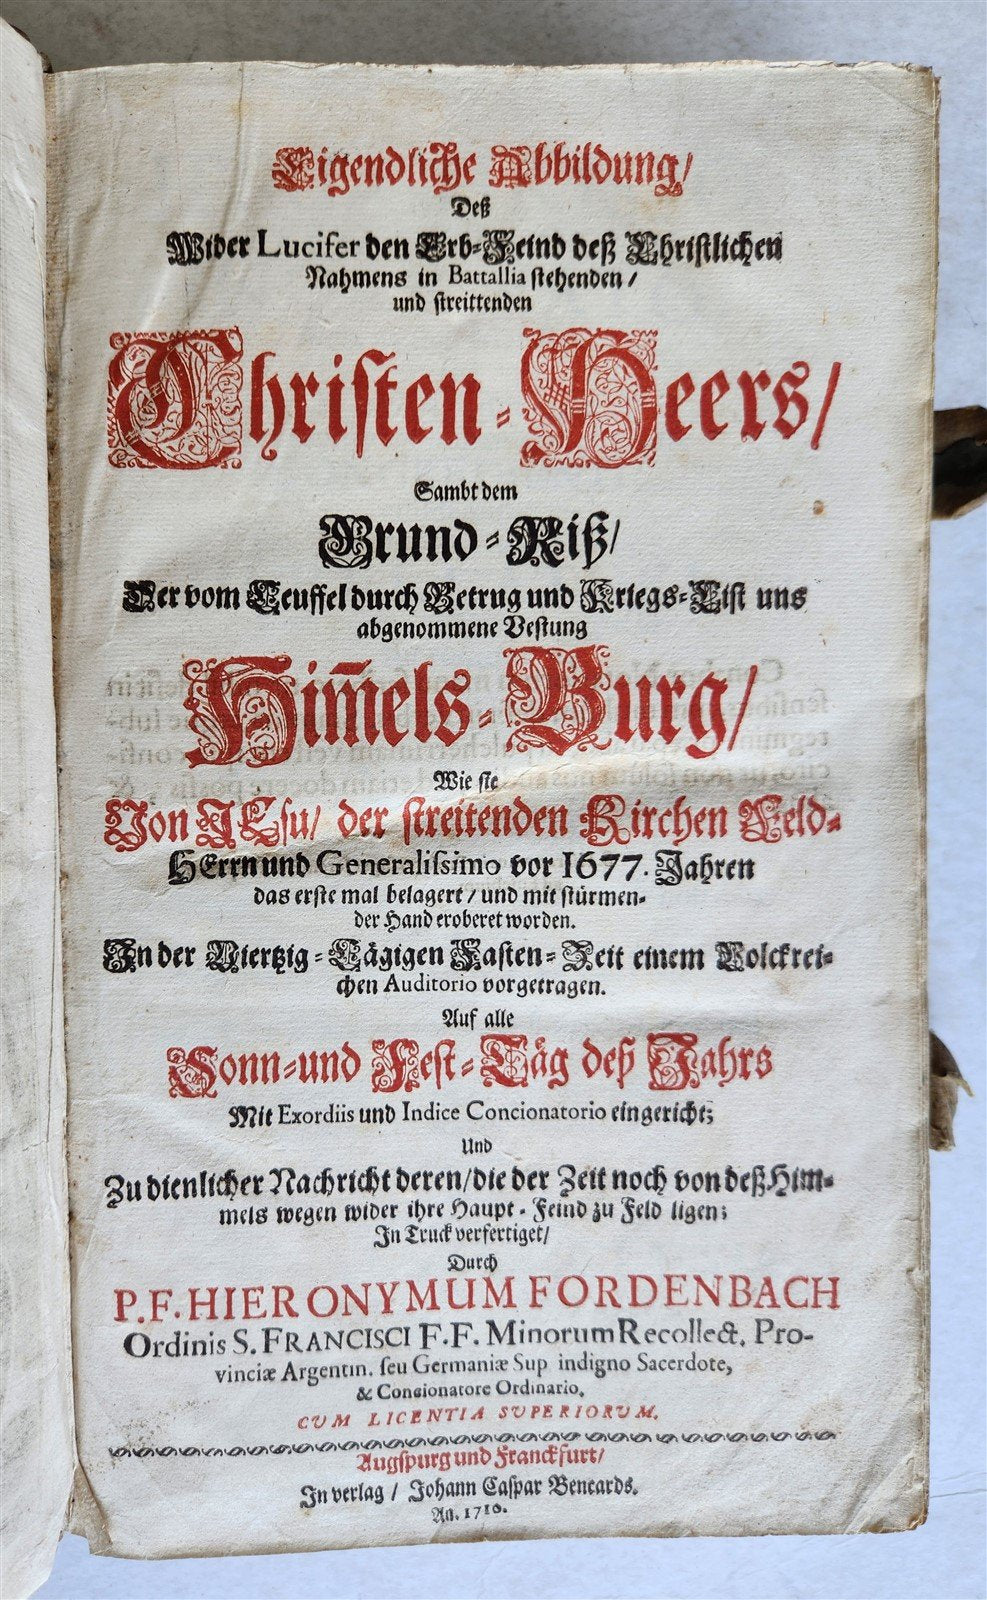 Eigendliche Abbildung/
Deß
Wider Lucifer den Erb-Feind deß Christlichen
Nahmens in Battallia stehenden/
und streittenden
Christen-Heers/
Sambt dem
Grund-Riß/
Der vom Teuffel durch Betrug und Kriegs-List uns
abgenommene Vestung
Him̅els-Burg/
Wie sie
Von JEsu/ der streitenden Kirchen Feld-
HErrn und Generalissimo vor 1677. Jahren
das erste mal belagert/ und mit stürmen-
der Hand eroberet worden.
In der Viertzig-Tägigen Fasten-Zeit einem Volckrei-
chen Auditorio vorgetragen.
Auf alle
Sonn-und Fest-Täg deß Jahrs
Mit Exordiis und Indice Concionatorio eingericht;
Und
Zu dienlicher Nachricht deren/ die der Zeit noch von deß Him-
mels wegen wider ihre Haupt-Feind zu Feld ligen;
In Truck verfertiget/
Durch
P. F. HIERONYMUM FORDENBACH
Ordinis S. FRANCISCI F. F. Minorum Recollect. Pro-
vinciæ Argentin. seu Germaniæ Sup indigno Sacerdote,
& Concionatore Ordinario.
CUM LICENTIA SUPERIORUM.
Augspurg und Franckfurt/
In verlag/ Johann Caspar Bencards.
An. 1710.